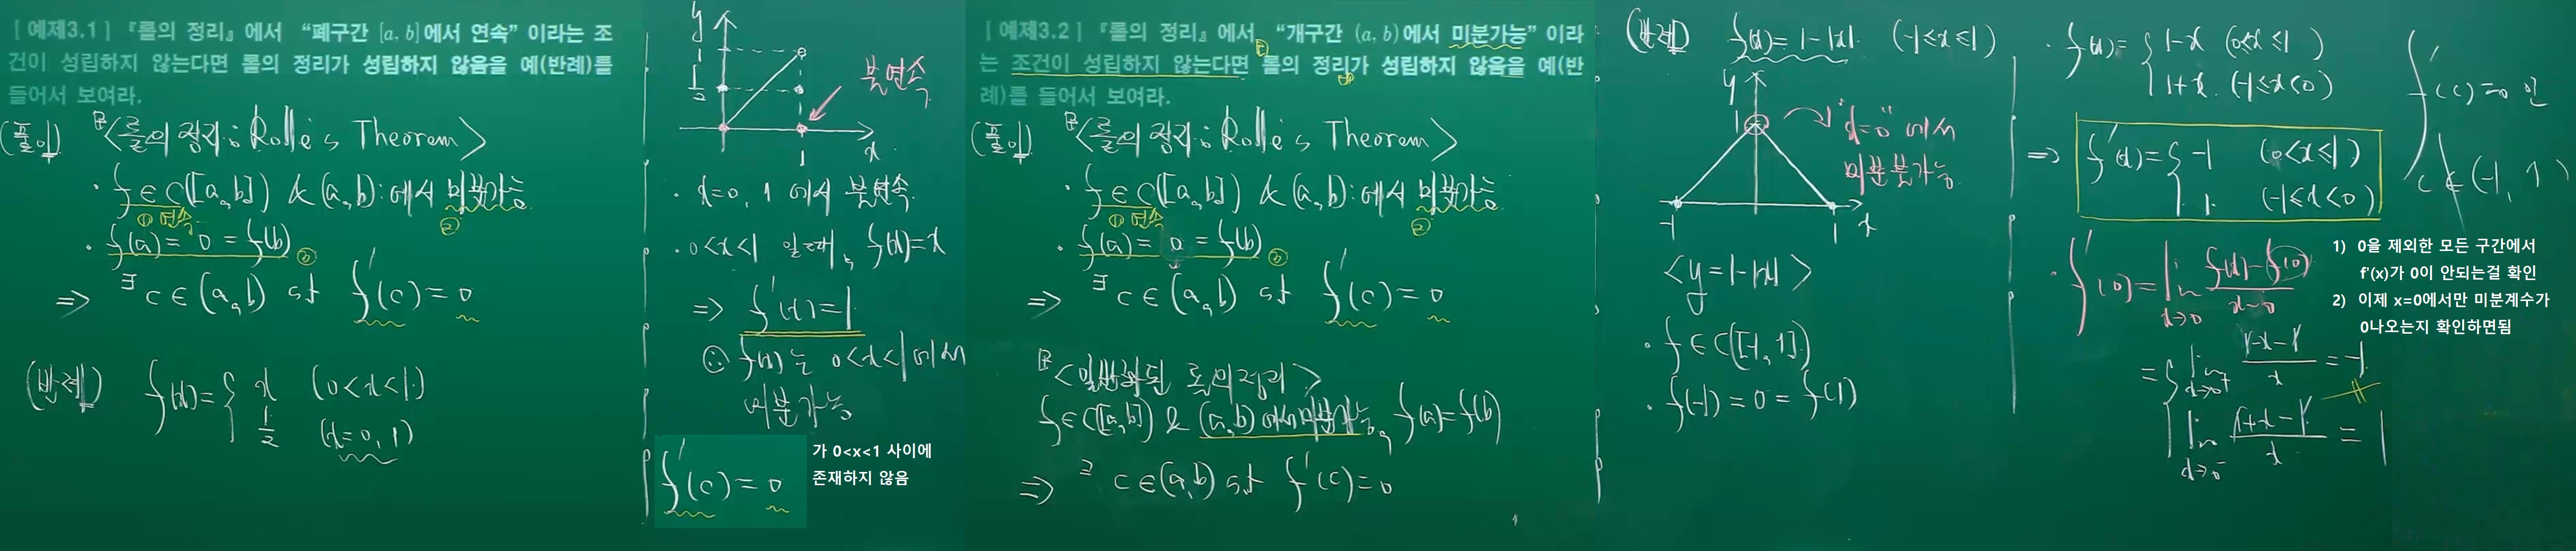 [ 예제3.1 ] 『롤의 정리』에서 “폐구간 [a, b]에서 연속” 이라는 조
건이 성립하지 않는다면 롤의 정리가 성립하지 않음을 예(반례)를
들어서 보여라.
(풀이) <롤의 정리 : Rolle's Theorem>
· f ∈ C([a, b]) & (a, b) : 에서 미분가능
① 연속 ②
· f(a) = 0 = f(b) ③
⇒ ∃ c ∈ (a, b) st f'(c) = 0
(반례) f(x) = { x (0<x<1)
1/2 (x=0, 1)
y
1
1/2
불연속
1 x
· x=0, 1 에서 불연속
· 0<x<1 일 때, f(x)=x
⇒ f'(x)=1
∴ f(x)는 0<x<1 에서
미분가능
f'(c) = 0
가 0<x<1 사이에
존재하지 않음
[ 예제3.2 ] 『롤의 정리』에서 “개구간 (a, b)에서 미분가능” 이라
는 조건이 성립하지 않는다면 롤의 정리가 성립하지 않음을 예(반
례)를 들어서 보여라.
(풀이) <롤의 정리 : Rolle's Theorem>
· f ∈ C([a, b]) & (a, b) : 에서 미분가능
① 연속 ②
· f(a) = 0 = f(b) ③
⇒ ∃ c ∈ (a, b) st f'(c) = 0
<일반화된 롤의 정리>
f ∈ C([a, b]) & (a, b) 에서 미분가능, f(a)=f(b)
⇒ ∃ c ∈ (a, b) s.t f'(c)=0
(반례) f(x) = 1-|x| (-1≤x≤1)
y
1
"x=0" 에서
미분불가능
-1 1 x
<y=1-|x|>
· f ∈ C([-1, 1])
· f(-1) = 0 = f(1)
· f(x) = { 1-x (0≤x≤1)
1+x (-1≤x<0)
⇒ f'(x) = { -1 (0<x≤1)
1 (-1≤x<0)
f'(c)=0 인
c ∉ (-1, 1)
· f'(0) = lim x→0 (f(x)-f(0))/(x-0)
= { lim x→0+ (1-x-1)/x = -1
lim x→0- (1+x-1)/x = 1
1) 0을 제외한 모든 구간에서
f'(x)가 0이 안되는걸 확인
2) 이제 x=0에서만 미분계수가
0나오는지 확인하면됨